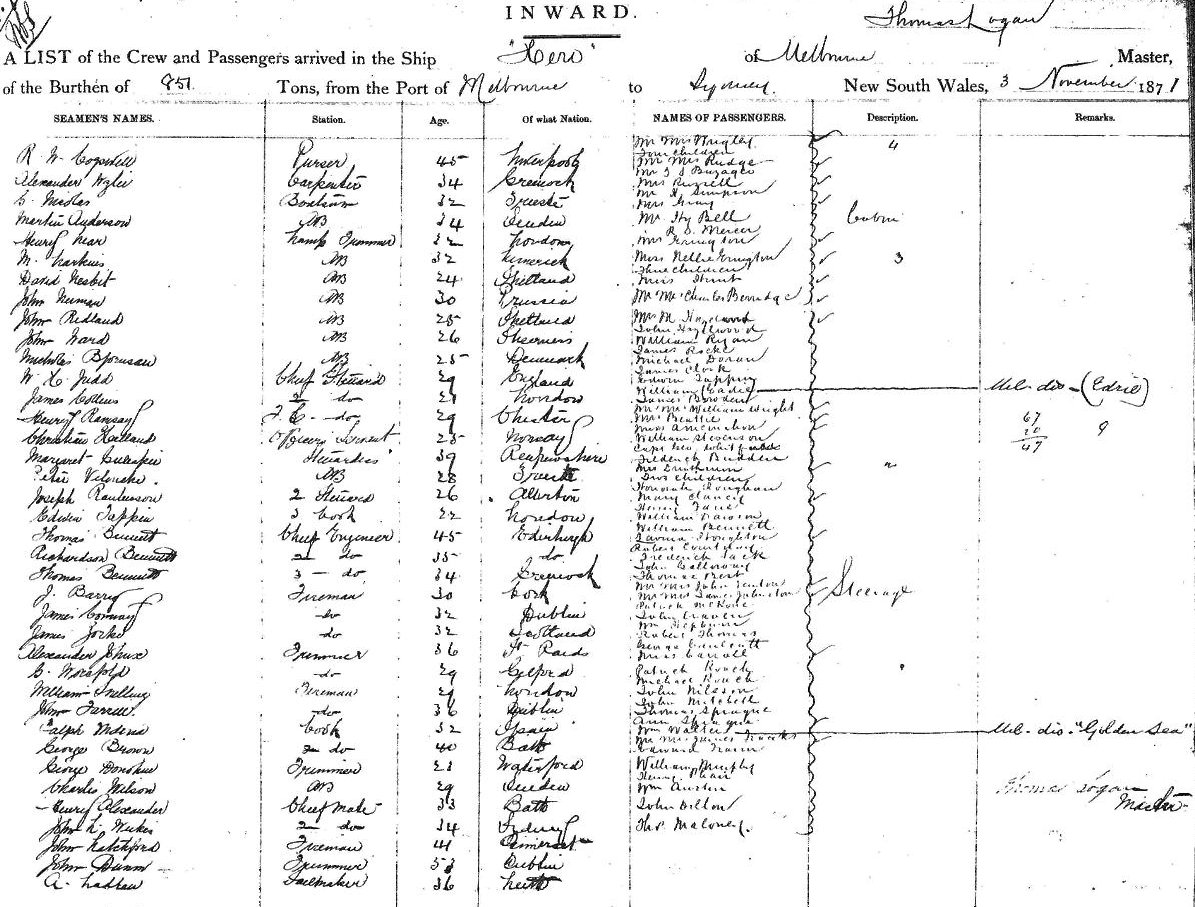 INWARD.
Thomas Logan
A LIST of the Crew and Passengers arrived in the Ship "Hero" of Melbourne Master,
of the Burthen of 851 Tons, from the Port of Melbourne to Sydney New South Wales, 3 November 1871
SEAMEN'S NAMES. Station. Age. Of what Nation. NAMES OF PASSENGERS. Description. Remarks.
Mr Mrs Wrigley 4
R W Cogswell Purser 45 Liverpool Mr Mrs Rudge
Alexander Wylie Carpenter 34 Greenock Mrs Russell
Mr H Simpson
Boatswn 32 Trieste Mrs Gray
Martin Anderson AB 34 Sweden Mr Hy Bell Cabin
Henry Near Lamp Trimmer 32 London R. D. Mercer
M. Harkins AB 32 Limerick Miss Nellie Errington 3
Three children
David Nesbit AB 24 Shetland Miss Hunt
John Neuman AB 30 Prussia Mr Mrs Charles
John Redland AB 25 Shetland Mrs M Haywood
John Haywood
John Ward AB 26 William Ryan
James Rocke
Nicholas AB 25 Denmark Michael Doran
James Clark
W. H. Judd Chief Steward 29 England Edwin Tapping
James 2 do London William Eadie Mel- dis - (Edric)
James Bowden
Henry Ramsay F. C. - do 29 Chester Mr Mrs William Wright
Mr Beattie 67
Christian Officers Servant 25 Norway 20 9
William Stevenson 47
Margaret Gillespie Stewardess 39 Renfrewshire Frederick
Peter AB 28 Trieste Two Children
Joseph Rawlinson 2 Steward 26 Allerton Mary Clancy
Edwin Tappin 3 Cook 22 London William
Thomas Bennett Chief Engineer 45 Edinburgh William Bennett
Richardson Bennett 2 do 35 do Robert
Frederick Jack
Thomas Bennett 3 - do 34 Greenock John Galloway
Thomas Best
J. Barry Fireman 30 Cork Mr Mrs John Fenton
Mr Mrs James Johnston Steerage
James Conway do 32 Dublin John Craven
Wm Hepburn
James do 32 Scotland Robert Thomas
Alexander Trimmer 36 St Pauls Miss Carroll
do 29 Gilford Patrick Roach
Michael Roach
William Snelling Fireman 29 London John Nilsson
John Mitchell
John Farrell do 36 Dublin Thomas Sprague
Ann Sprague
Ralph Cook 32 Spain Wm Walter Mel- dis. "Golden Sea"
Mr Mrs James
George Brown 2 do 40 Bath Edward
George Donohue Trimmer 21 Waterford William Murphy
Charlie Wilson AB 29 Sweden Wm Austin Thomas Logan
Henry Alexander Chief Mate 33 Bath John Dillon Master
John L. 2 do 34 Sydney Thos Maloney
John Hatchford Fireman 41 Somerset
John Dunn Trimmer 53 Dublin
A. Sailmaker 36 Leith